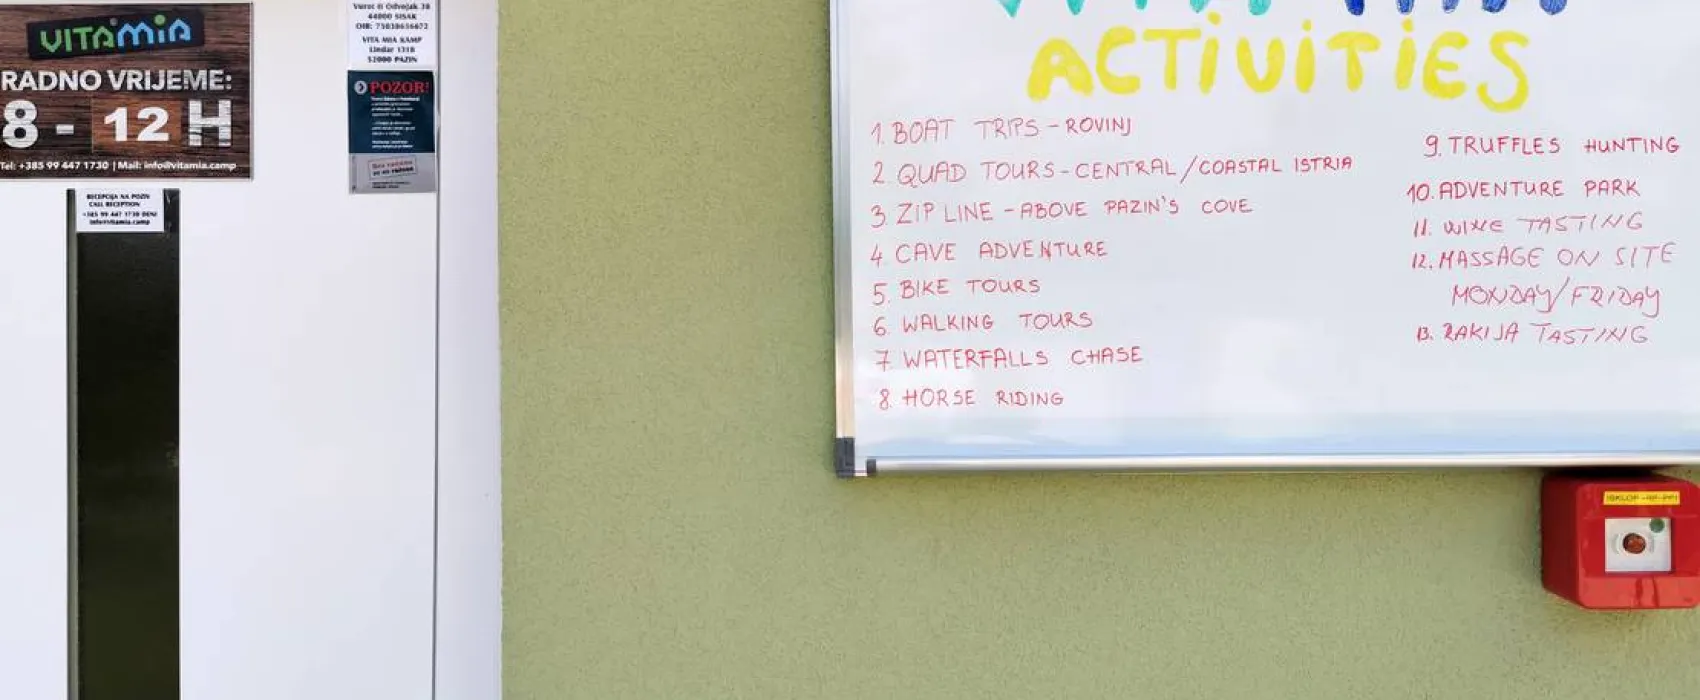 VITAMIA
RADNO VRIJEME:
8 - 12 H
Tel: +385 99 447 1730 | Mail: info@vitamia.camp
RECEPCIJA NA POZIV
CALL RECEPTION
+385 99 447 1730 DENI
info@vitamia.camp
44000 SISAK
VITA MIA KAMP
Lindar 131B
52000 PAZIN
POZOR!
ACTIVITIES
1. BOAT TRIPS - ROVINJ
2. QUAD TOURS - CENTRAL / COASTAL ISTRIA
3. ZIP LINE - ABOVE PAZIN'S COVE
4. CAVE ADVENTURE
5. BIKE TOURS
6. WALKING TOURS
7. WATERFALLS CHASE
8. HORSE RIDING
9. TRUFFLES HUNTING
10. ADVENTURE PARK
11. WINE TASTING
12. MASSAGE ON SITE
MONDAY/FRIDAY
13. RAKIJA TASTING